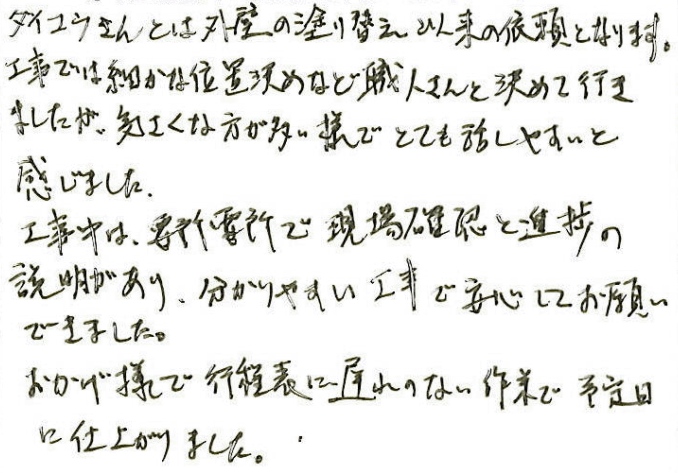 ダイユウさんとは外壁の塗り替え以来の依頼となります。
工事では細かな位置決めなど職人さんと決めて行き
ましたが、気さくな方が多い様でとても話しやすいと
感じました。
工事中は、要所要所で現場確認と進捗の
説明があり、分かりやすい工事で安心してお願い
できました。
おかげ様で行程表に遅れのない作業で予定日
に仕上がりました。